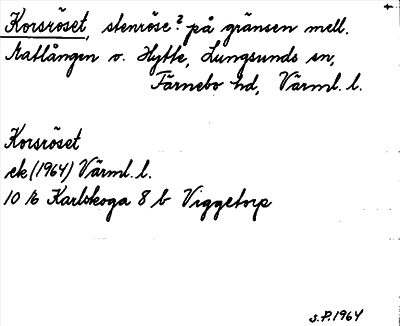 Korsröset, stenröse? på gränsen mell.
Matlången o. Hytte, Lungsunds sn,
Färnebo hd, Värml. l.
Korsröset
ek (1964) Värml. l.
10 E Karlskoga 8 b Viggetorp
s.P. 1964